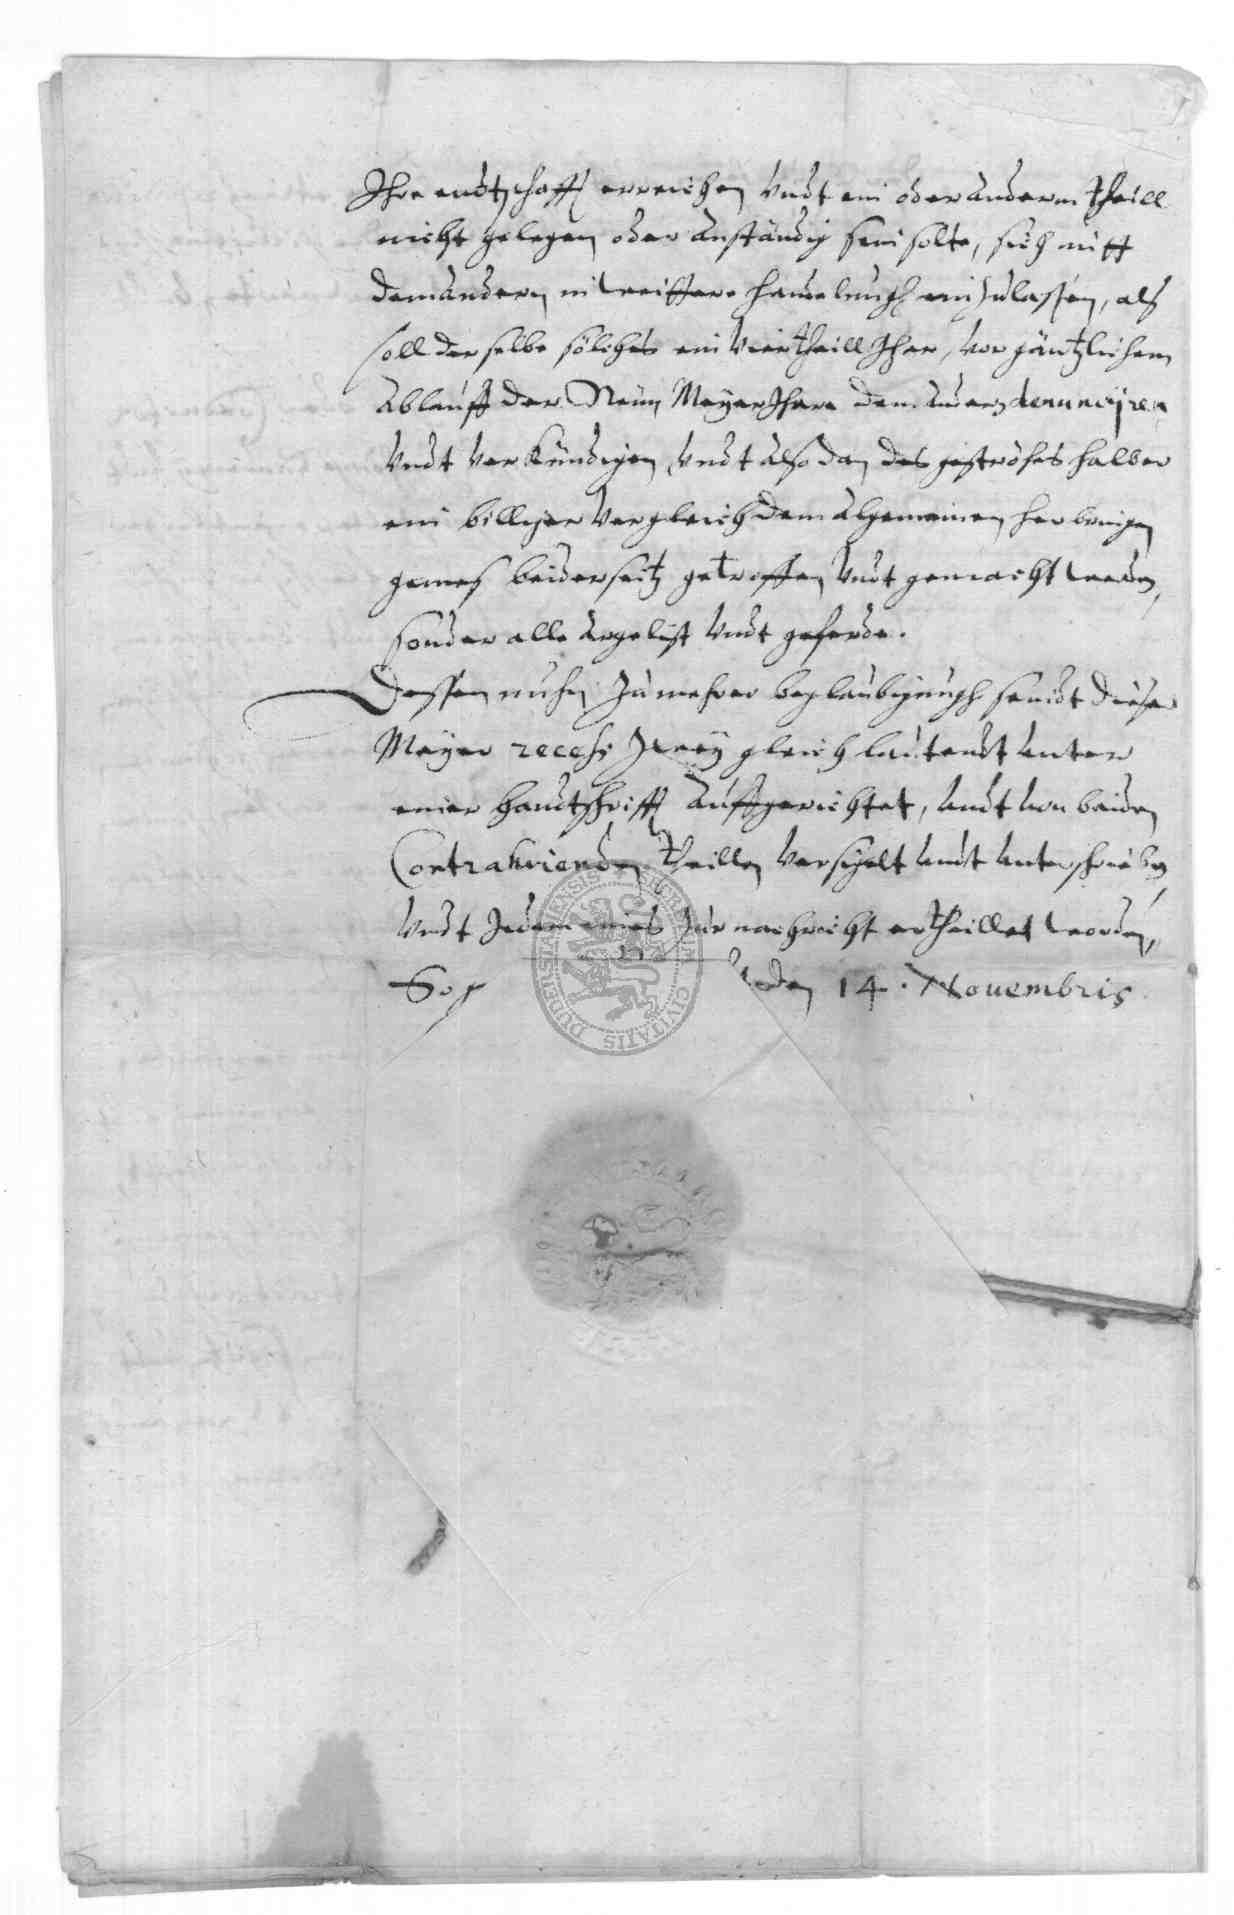 Ihre endtschafft erreichen vndt ein oder anderm theill
nicht gelegen oder anständig sein solte, sich mitt
dem andern in weittere handelungh einzulassen, alß
soll derselbe sölches ein viertheill Jhar, vor gäntzlichem
ablauff der Neun Meyer Jhare dem andern denuncijren
vndt verkündigen, vndt alßdan des geströhes halber
ein billiger vergleich dem algemeinen herbringen
gemeß beiderseitz getroffen vndt gemacht werden,
sonder alle argelist vndt geferde.
Dessen nuhn zu mehrer beglaubigungh seindt dieser
Meyer recess zweÿ gleichlautendt unter
einer handtschrifft auffgerichtet, undt von beiden
Contrahirenden theillen versigelt undt unterschrieben
vndt Jedem eines zur nachricht ertheillet worden,
So den 14. Novembris
SIGILLUM CIVITATIS DUDERSTADIENSIS